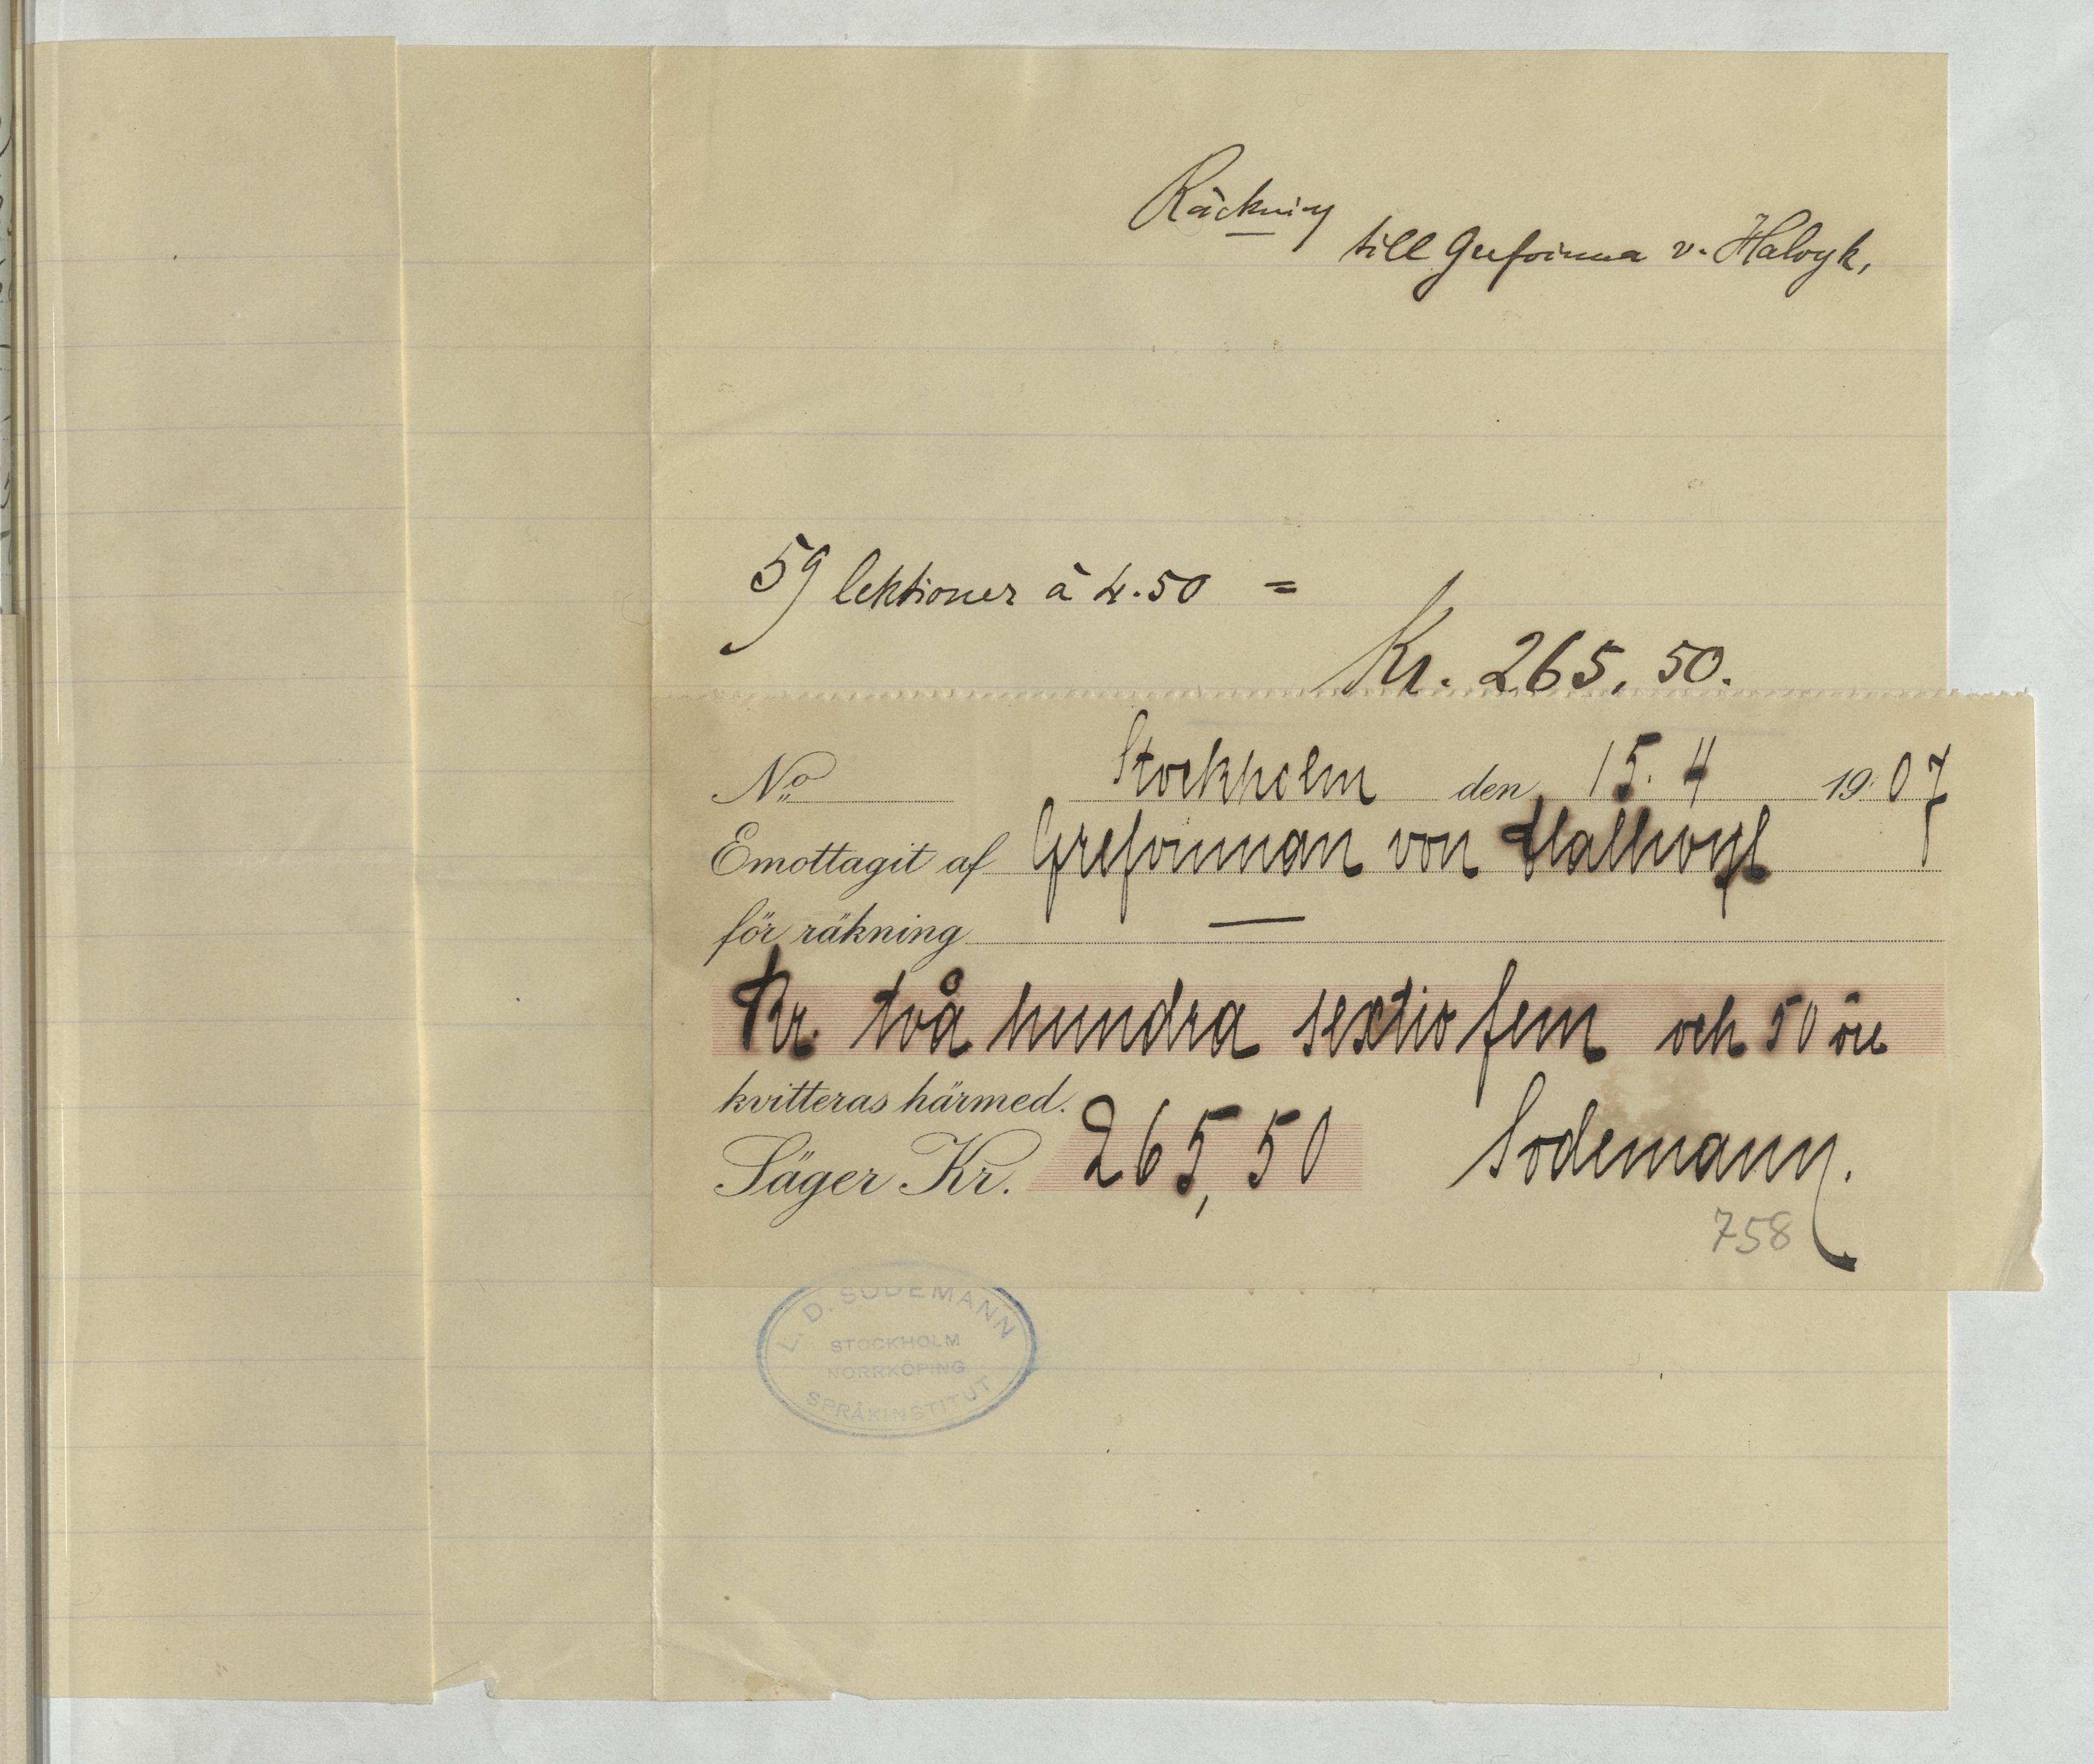 Räckning
till Grefvinna v. Halvyk,
59 lektioner à 4.50 =
Kr. 265,50.
No Stockholm den 15. 4 1907
Emottagit af Grefvinnan von Hallwyl
för räkning —
Kr. två hundra sextio fem och 50 öre
kvitteras härmed.
Säger Kr. 265,50 Sodemann.
758
D. SODEMANN
STOCKHOLM
NORRKÖPING
SPRÅKINSTITUT